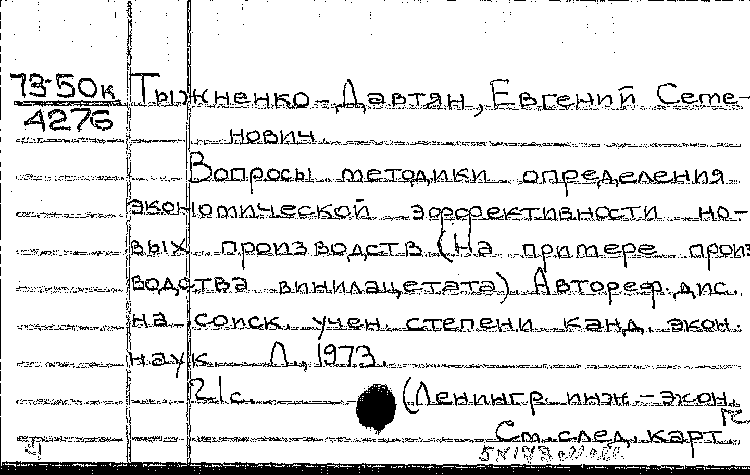 73-50к Тыжненко-Давтян, Евгений Семе-
4276
нович.
Вопросы методики определения
экономической эффективности но-
вых производств (На примере произ
водства винилацетата). Автореф. дис.
на соиск. учен. степени канд. экон.
наук. Л., 1973.
21с. (Ленингр. инж-экон.
См. след. карт